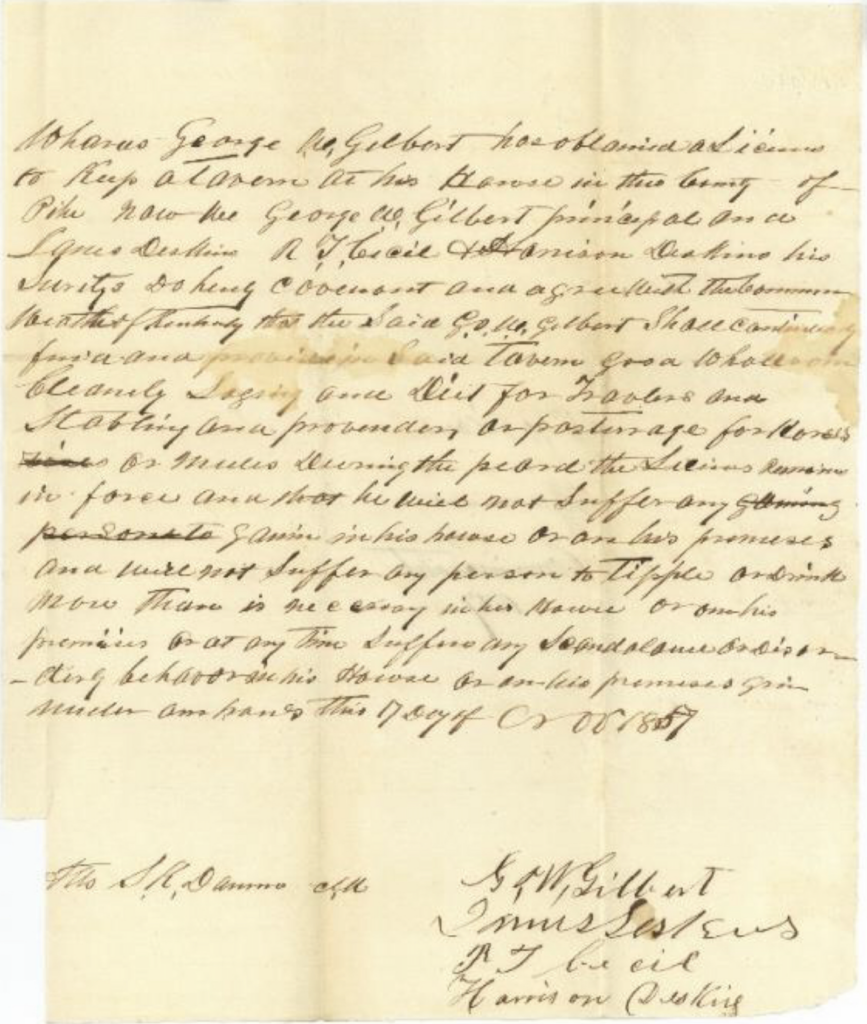 Wharas George W, Gilbert has obtained a Licens
to Keep a Tavern at his Howse in the County of
Pike Now We George W, Gilbert principal and
James Deskins R T, Cecil & Harrison Deskins his
Suritys Do heny Covenant and agree With the Common
Wealth of Kentucky that the Said G, W, Gilbert Shall
find and provide in Said Tavern good Whol
Cleanly Loging and Diet for Travlers and
Stabling and provender, or pasturrage for Horses
or Mules During the peard the Licins
in force and that he will not Suffer any gaming
persons to gamin in his howse or on his premeses
and will not Suffer any person to Tipple or Drink
More than is necessary in his Howse or on his
premises or at any time Suffer any Scandalous or Disor-
-derly behavor in his Howse or on his premeses giv
under our hands this 17 Day of 1857
Atts S. K, Damron clk
G, W, Gilbert
James Deskins
R T Cecil
Harrison Deskins